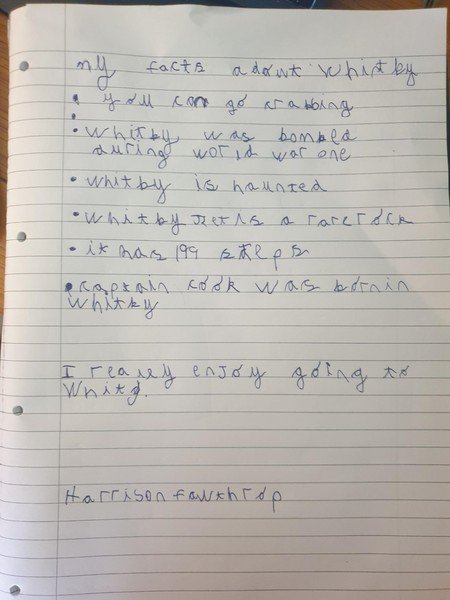 my facts adout whitby
• you can go crabbing
•
• whitby was bombed
during world war one
• whitby is haunted
• whitby jet is a rare rock
• it has 199 steps
• captain cook was born in
whitby
I really enjoy going to
Whitby.
Harrison fawthrop